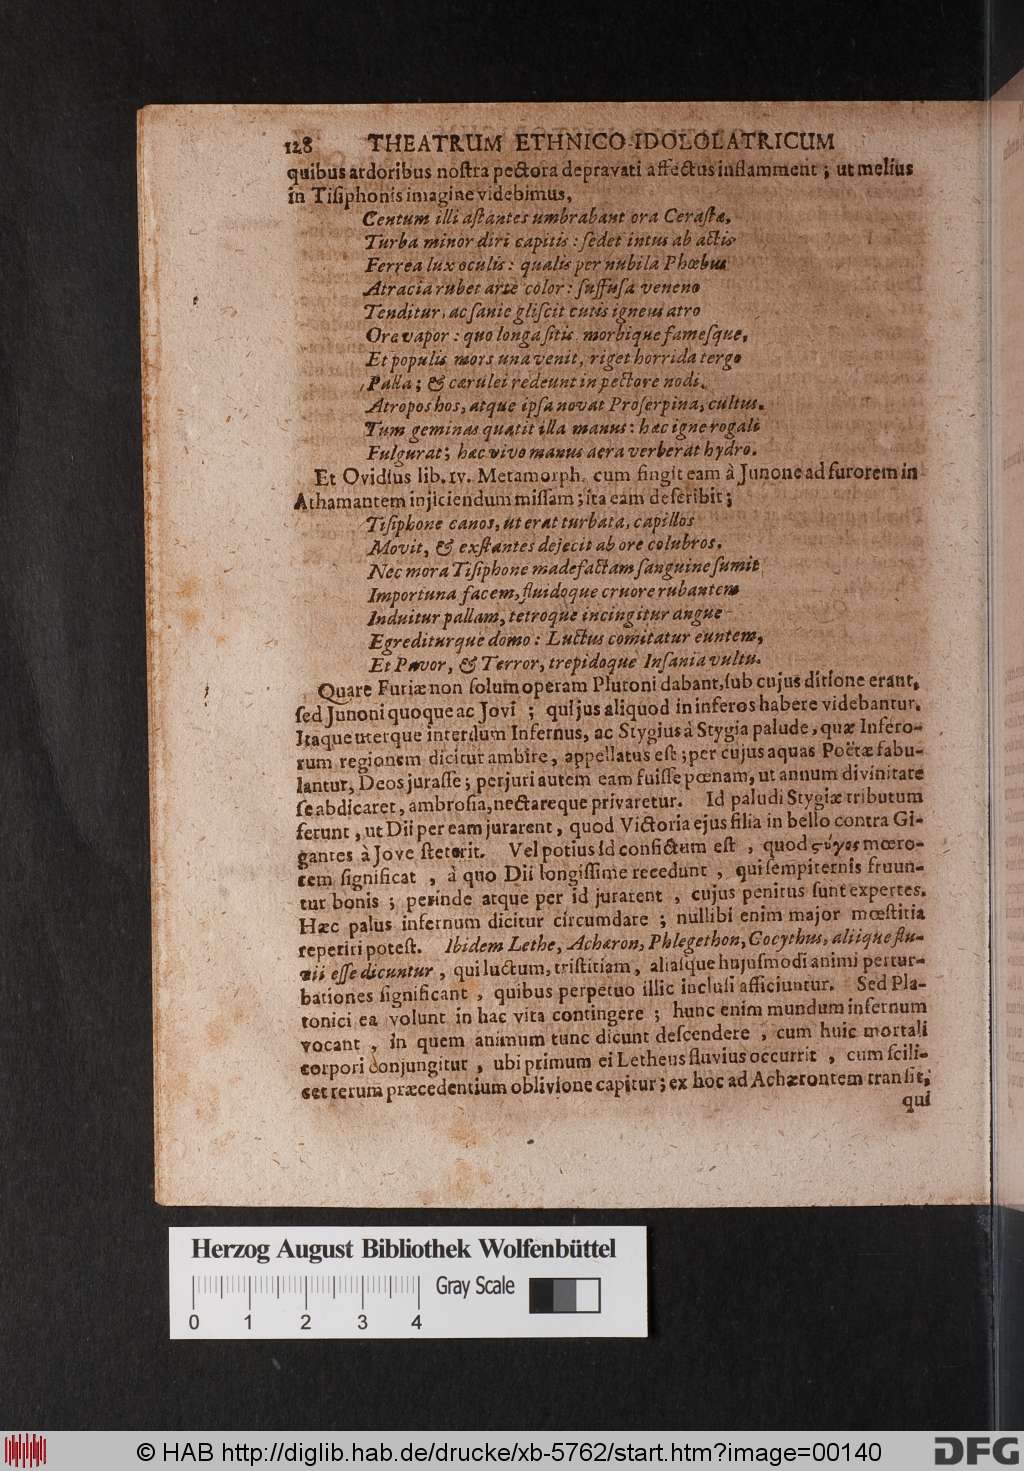 128 THEATRUM ETHNICO-IDOLOLATRICUM
quibus ardoribus noſtra pectora depravati affectus inflamment ; ut melius
in Tiſiphonis imagine videbimus,
Centum illi aſtantes umbrabant ora Ceraſtæ,
Turba minor diri capitis : ſedet intus ab actis
Ferrea lux oculis : qualis per nubila Phœbus
Atracia rubet arte color : ſuffuſa veneno
Tenditur, ac ſanie gliſcit cutis igneus atro
Ore vapor : quo longa ſitis morbique fameſque,
Et populis mors una venit, riget horrida tergo
Palla ; & cærulei redeunt in pectore nodi.
Atropos hos, atque ipſa novat Proſerpina, cultus.
Tum geminas quatit illa manus : hæc igne rogali
Fulgurat ; hæc vivo manus aera verberat hydro.
Et Ovidius lib. IV. Metamorph. cum fingit eam à Junone ad furorem in
Athamantem injiciendum miſſam ; ita eam deſcribit ;
Tiſiphone canos, ut erat turbata, capillos
Movit, & exſtantes dejecit ab ore colubros.
Nec mora Tiſiphone madefactam ſanguine ſumit
Importuna facem, fluidoque cruore rubantem
Induitur pallam, tetroque incingitur angue
Egrediturque domo : Luctus comitatur euntem,
Et Pavor, & Terror, trepidoque Inſania vultu.
Quare Furiæ non ſolum operam Plutoni dabant, ſub cujus ditione erant,
ſed Junoni quoque ac Jovi ; qui jus aliquod in inferos habere videbantur.
Itaque uterque interdum Infernus, ac Stygius à Stygia palude, quæ Infero-
rum regionem dicitur ambire, appellatus eſt ; per cujus aquas Poëtæ fabu-
lantur, Deos juraſſe ; perjuri autem eam fuiſſe pœnam, ut annum divinitate
ſe abdicaret, ambroſia, nectareque privaretur. Id paludi Stygiæ tributum
ferunt , ut Dii per eam jurarent , quod Victoria ejus filia in bello contra Gi-
gantes à Jove ſteterit. Vel potius id confictum eſt , quod ςύγος mœro-
rem ſignificat , à quo Dii longiſſime recedunt , qui ſempiternis fruun-
tur bonis ; perinde atque per id jurarent , cujus penitus ſunt expertes.
Hæc palus infernum dicitur circumdare ; nullibi enim major mœſtitia
reperiri poteſt. Ibidem Lethe, Acharon, Phlegethon, Cocythus, aliique flu-
vii eſſe dicuntur , qui luctum, triſtitiam , aliaſque hujuſmodi animi pertur-
bationes ſignificant , quibus perpetuo illic incluſi afficiuntur. Sed Pla-
tonici ea volunt in hac vita contingere ; hunc enim mundum infernum
vocant , in quem animum tunc dicunt deſcendere , cum huic mortali
corpori conjungitur , ubi primum ei Letheus fluvius occurrit , cum ſcili-
cet rerum præcedentium oblivione capitur ; ex hoc ad Achærontem tranſit,
qui
Herzog August Bibliothek Wolfenbüttel
0 1 2 3 4 Gray Scale
© HAB http://diglib.hab.de/drucke/xb-5762/start.htm?image=00140
DFG